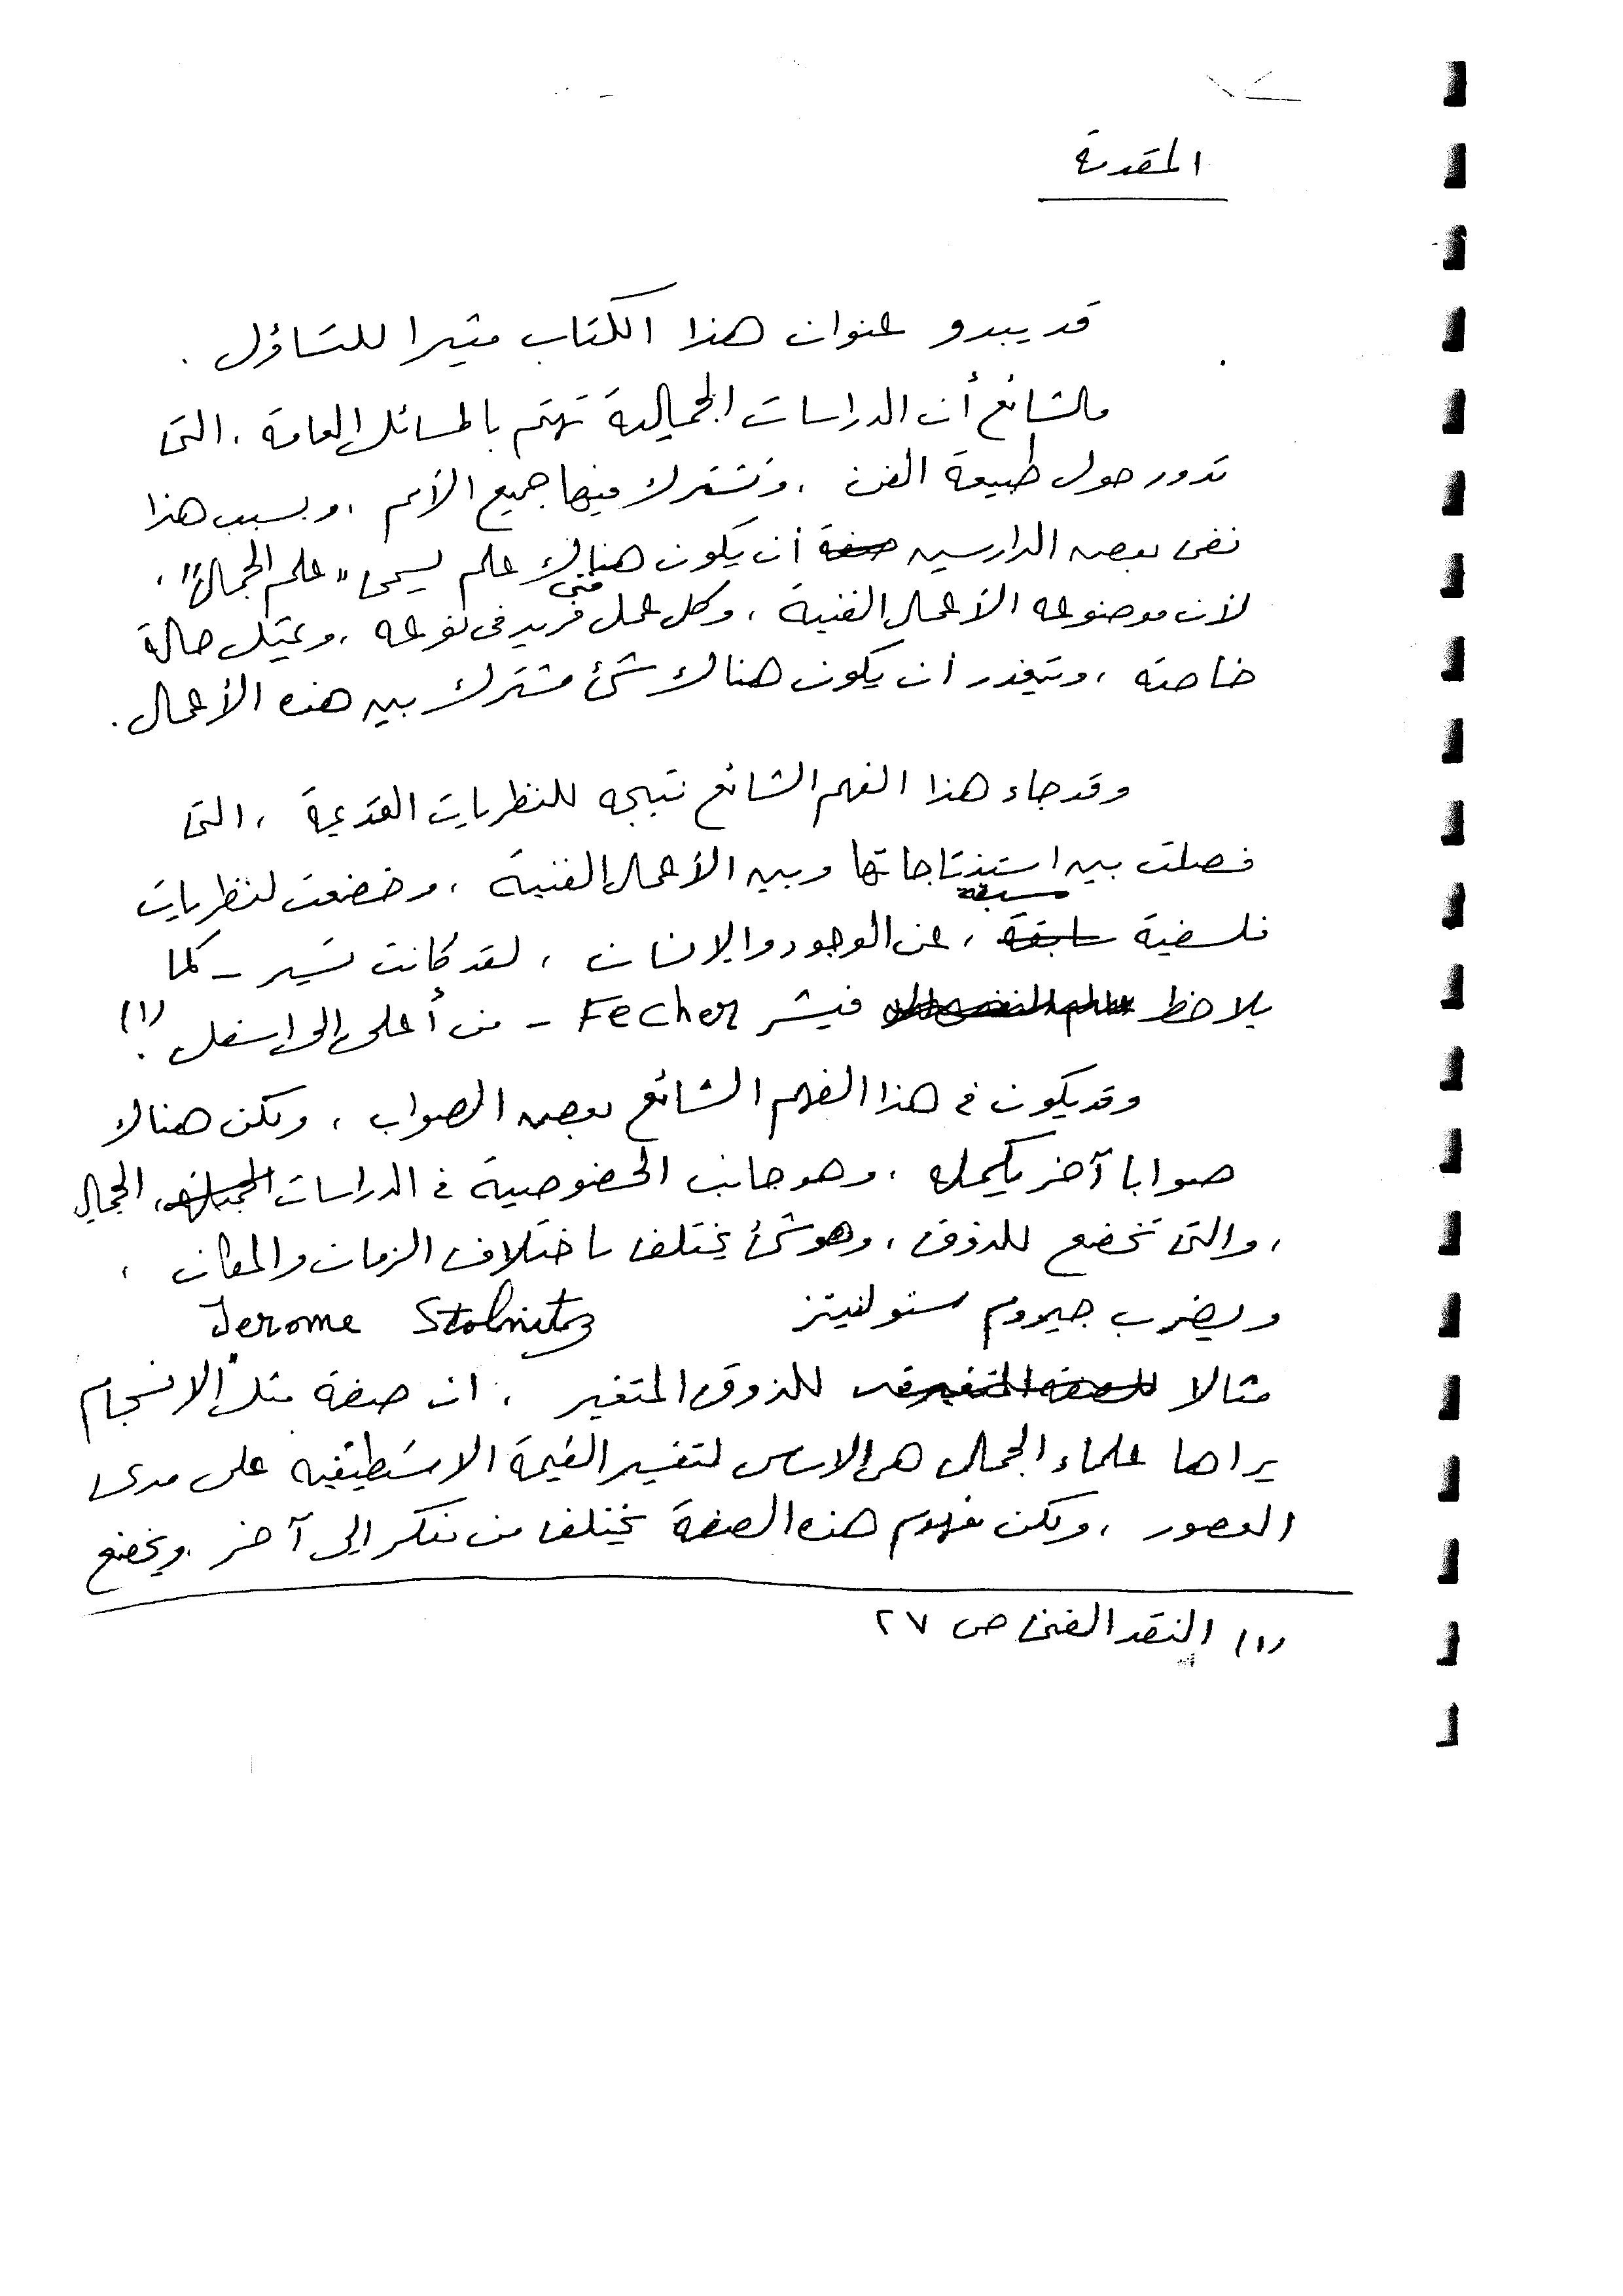 المقدمة
قد يبدو عنوان هذا الكتاب مثيرا للتساؤل .
فالشائع أن الدراسات الجمالية تهتم بالمسائل العامة ، التى
تدور حول طبيعة الفن ، وتشترك فيها جميع الأمم ، وبسبب هذا
نفى بعض الدارسين صفة أن يكون هناك علم يسمى "علم الجمال" ،
لأن موضوعه الأعمال الفنية ، وكل عمل فنى فريد فى نوعه ، ويمثل حالة
خاصة ، ويتعذر أن يكون هناك شئ مشترك بين هذه الأعمال .
وقد جاء هذا الفهم الشائع نتيجة للنظريات القديمة ، التى
فصلت بين استنتاجاتها وبين الأعمال الفنية ، وخضعت لنظريات
فلسفية سابقة مسبقة ، عن الوجود والإنسان ، لقد كانت تسير – كما
يلاحظ فيشر Fecher – من أعلى إلى أسفل (١) .
وقد يكون فى هذا الفهم الشائع بعض الصواب ، ولكن هناك
صوابا آخر يكمله ، وهو جانب الخصوصية فى الدراسات الجمالية
، والتى تخضع للذوق ، وهو شئ يختلف باختلاف الزمان والمكان ،
ويضرب جيروم ستولنيتز Jerome Stolnitz
مثالا للذوق المتغير . ان صفة مثل "الانسجام
يراها علماء الجمال هى الاساس لتفسير القيمة الاستطيقية على مدى
العصور ، ولكن مفهوم هذه الصفة يختلف من مفكر إلى آخر ، ويخضع
(١) النقد الفنى ص ٢٧